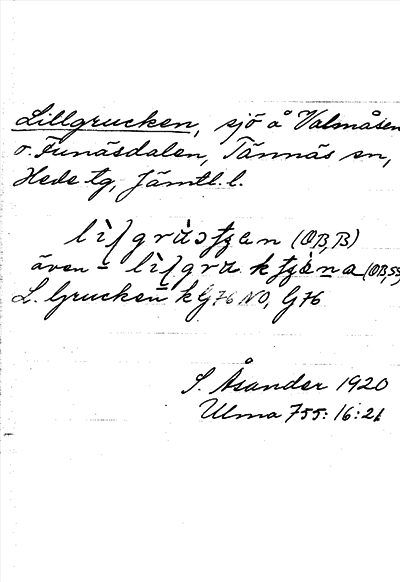 Lillgrucken, sjö å Valmåsen
v. Funäsdalen, Tännäs sn,
Hede tg, Jämtl. l.
(OB, B)
även =
L. Grucken = k G76 NO, G76
S. Åsander 1920
Ulma 755: 16: 21